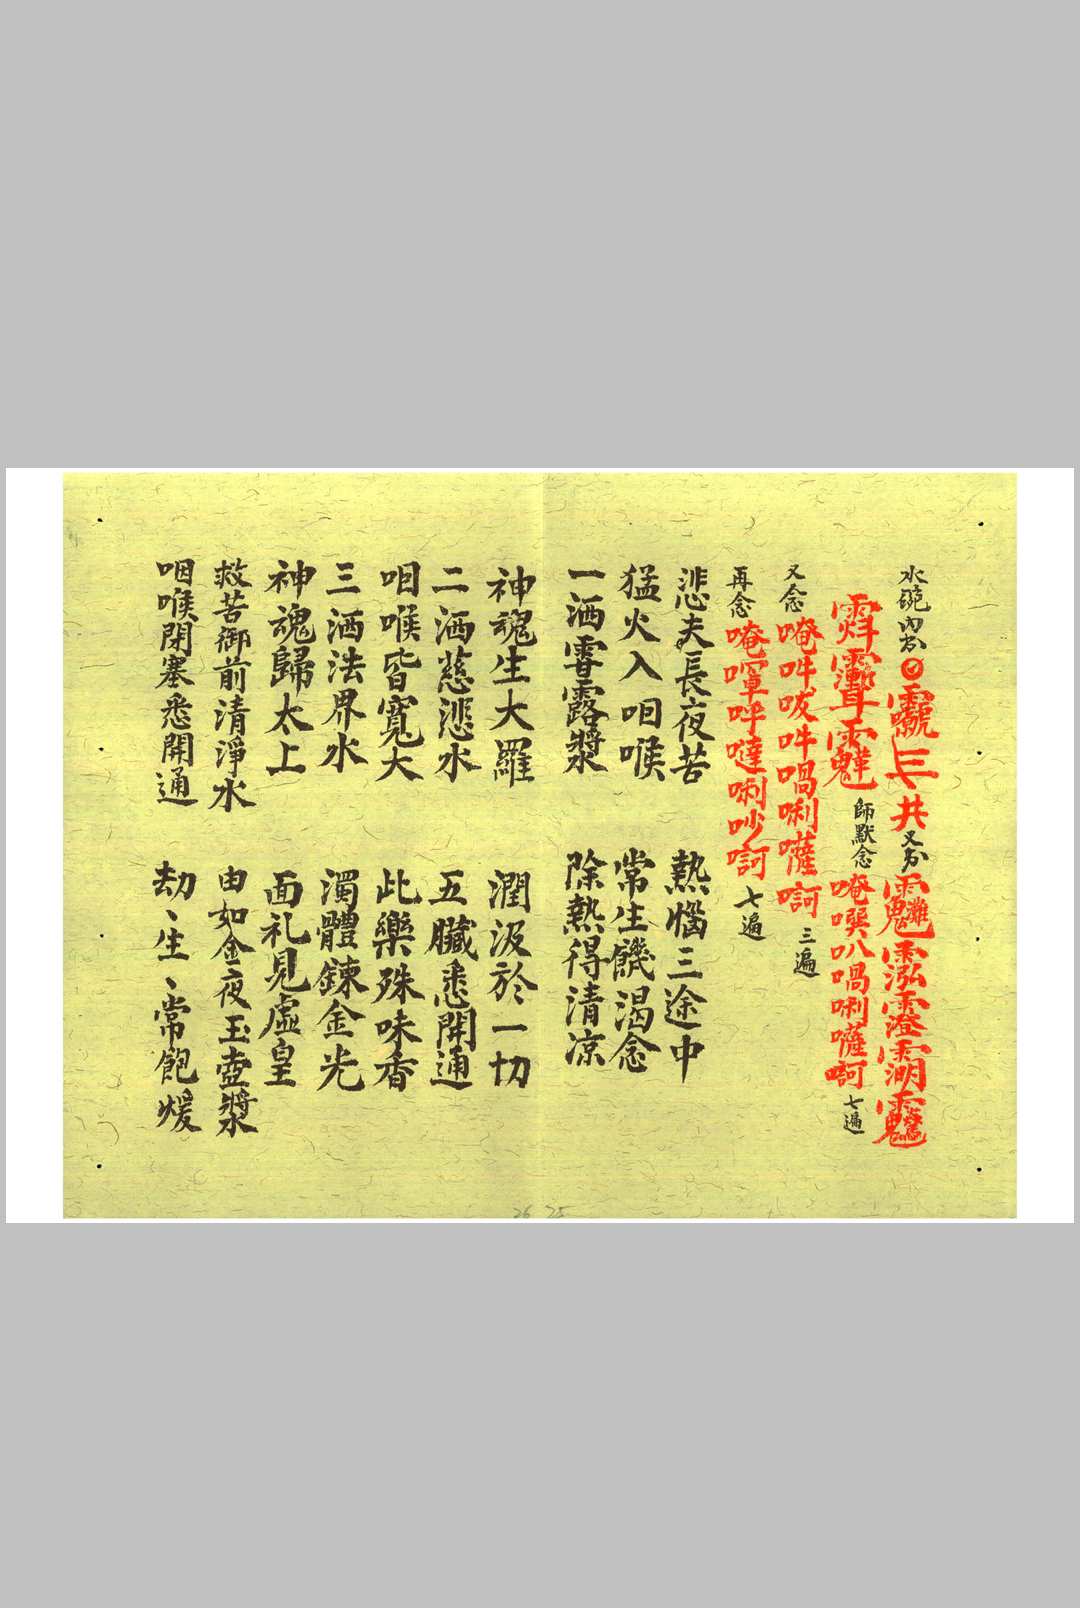 水碗內书 三 共 又书
師默念 唵㗲叭㖞唎囉訶 七遍
又念 唵吽吠吽㖞唎囉訶 三遍
再念 唵嘽呼噠唎吵訶 七遍
悲夫長夜苦 熱惱三途中
猛火入咽喉 常生饑渴念
一洒霅露漿 除熱得清凉
神魂生大羅 潤汲於一切
二洒慈悲水 五臟悉開通
咽喉皆寬大 此樂殊味香
三洒法界水 濁體鍊金光
神魂歸太上 面礼見虛皇
救苦御前清淨水 由如金夜玉壺漿
咽喉閉塞悉開通 劫丶生丶常飽煖
26 25